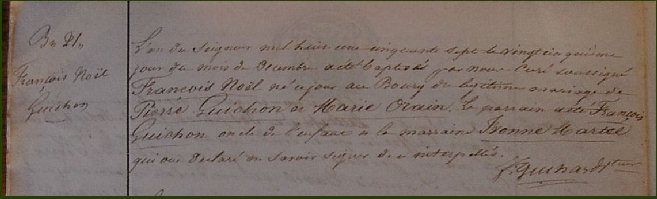 François Noël
Guichon
L'an du Seigneur mil huit cent cinquante sept le vingt cinquième
jour du mois de Décembre a été baptisé par nous Curé soussigné
François Noël né ce jour au Bourg du légitime mariage de
Pierre Guichon & Marie Orain. Le parrain a été François
Guichon oncle de l'enfant & la marraine Yvonne Martel
qui ont déclaré ne savoir signer de ce interpellés.
Guihard